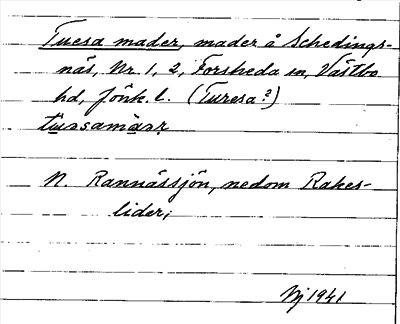 Tuesa mader, mader å Schedings-
näs, Nr. 1, 2, Forsheda sn, Västbo
hd, Jönk. l. (Turesa?)
tussamäsr
N. Rannässjön, nedom Rakes-
lider;
Nj 1941